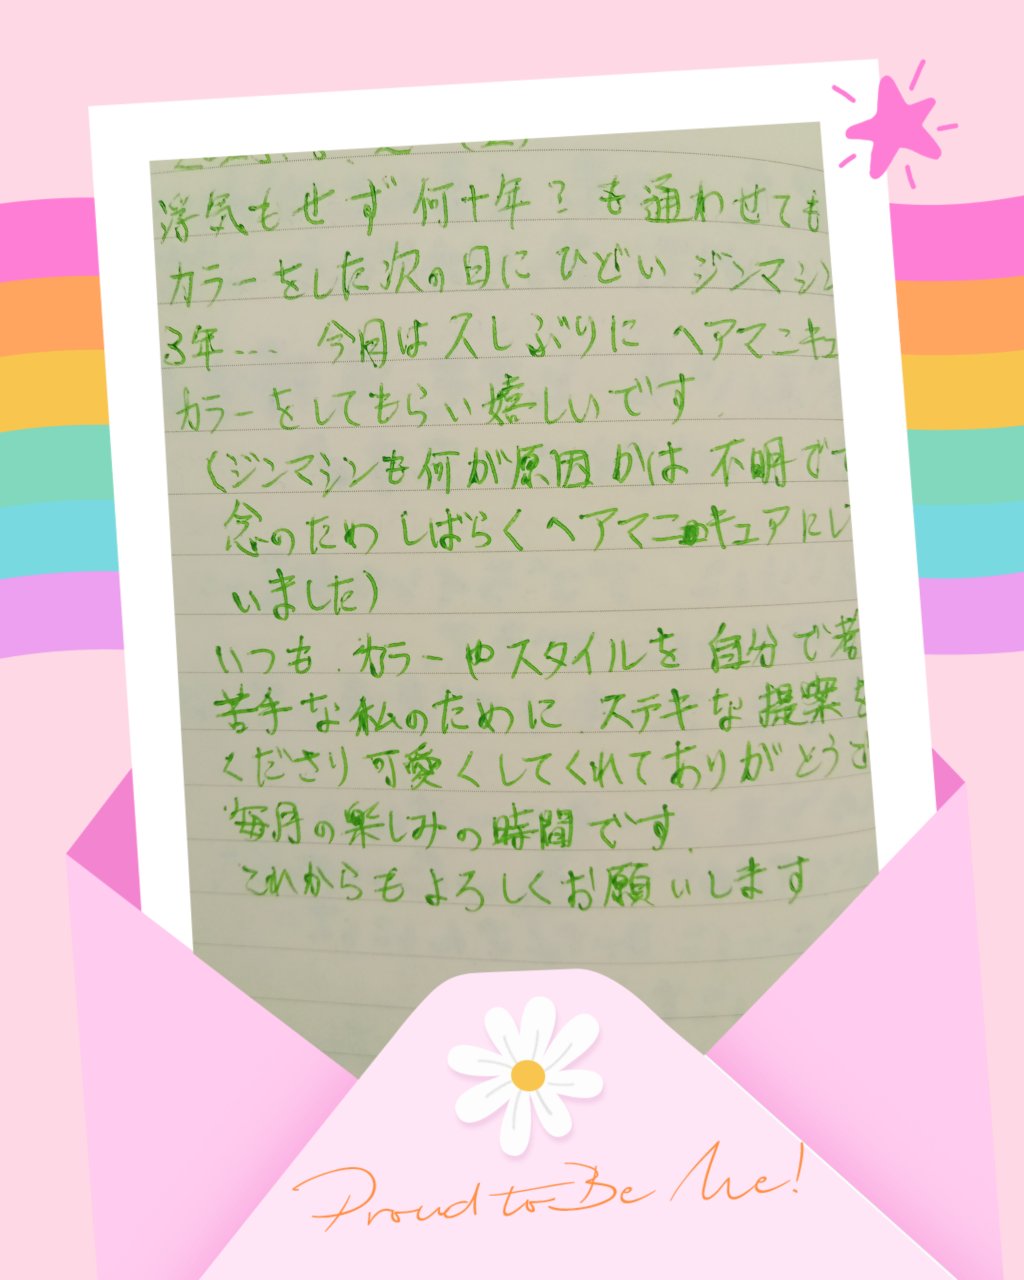 浮気もせず何十年?も通わせても
カラーをした次の日にひどいジンマシン
3年... 今月は久しぶりにヘアマニキュ
カラーをしてもらい嬉しいです
(ジンマシンも何が原因かは不明で
念のためしばらくヘアマニキュアにし
いました)
いつも.カラーやスタイルを自分で考
苦手な私のためにステキな提案を
くださり可愛くしてくれてありがとうご
毎月の楽しみの時間です.
これからもよろしくお願いします
Proud to Be Me!